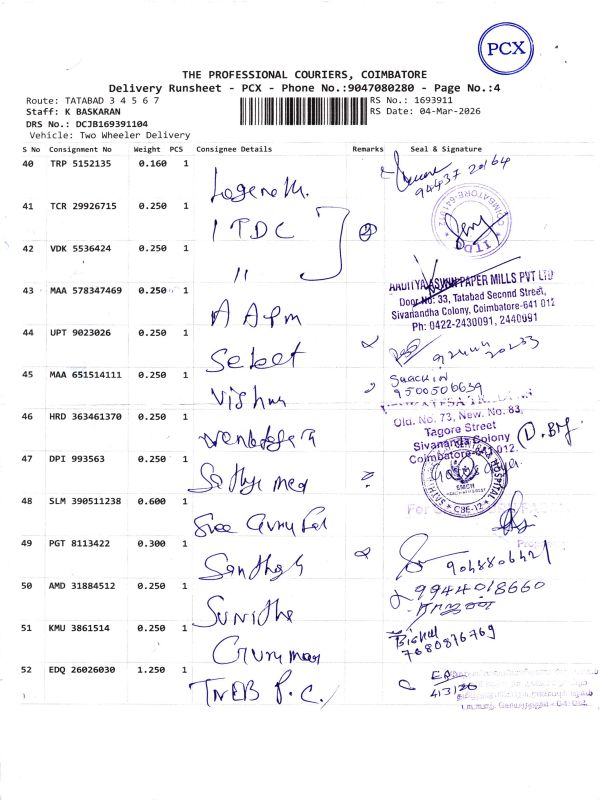 PCX
THE PROFESSIONAL COURIERS, COIMBATORE
Delivery Runsheet - PCX - Phone No.:9047080280 - Page No.:4
Route: TATABAD 3 4 5 6 7
RS No.: 1693911
Staff: K BASKARAN
RS Date: 04-Mar-2026
DRS No.: DCJB169391104
Vehicle: Two Wheeler Delivery
S No Consignment No Weight PCS Consignee Details Remarks Seal & Signature
40 TRP 5152135 0.160 1
94437 20164
41 TCR 29926715 0.250 1 ITDC
42 VDK 5536424 0.250 1 "
43 MAA 578347469 0.250 1 A A Pm
AADITYA ASWIN PAPER MILLS PVT LTD
Door No: 33, Tatabad Second Street,
Sivanandha Colony, Coimbatore-641 012
Ph: 0422-2430091, 2440691
44 UPT 9023026 0.250 1 Select
45 MAA 651514111 0.250 1 Vishnu
Sarckin
9500506639
46 HRD 363461370 0.250 1
Old. No. 73, New. No. 83,
Tagore Street
Sivananda Colony
Coimbatore-641 012.
47 DPI 993563 0.250 1 Sathya med
48 SLM 390511238 0.600 1 Sree Guru
49 PGT 8113422 0.300 1 Santhosh
50 AMD 31884512 0.250 1 Sunitha
9944018660
51 KMU 3861514 0.250 1
Bishal
7680876769
52 EDQ 26026030 1.250 1 TNEB P.C.
4/3/26